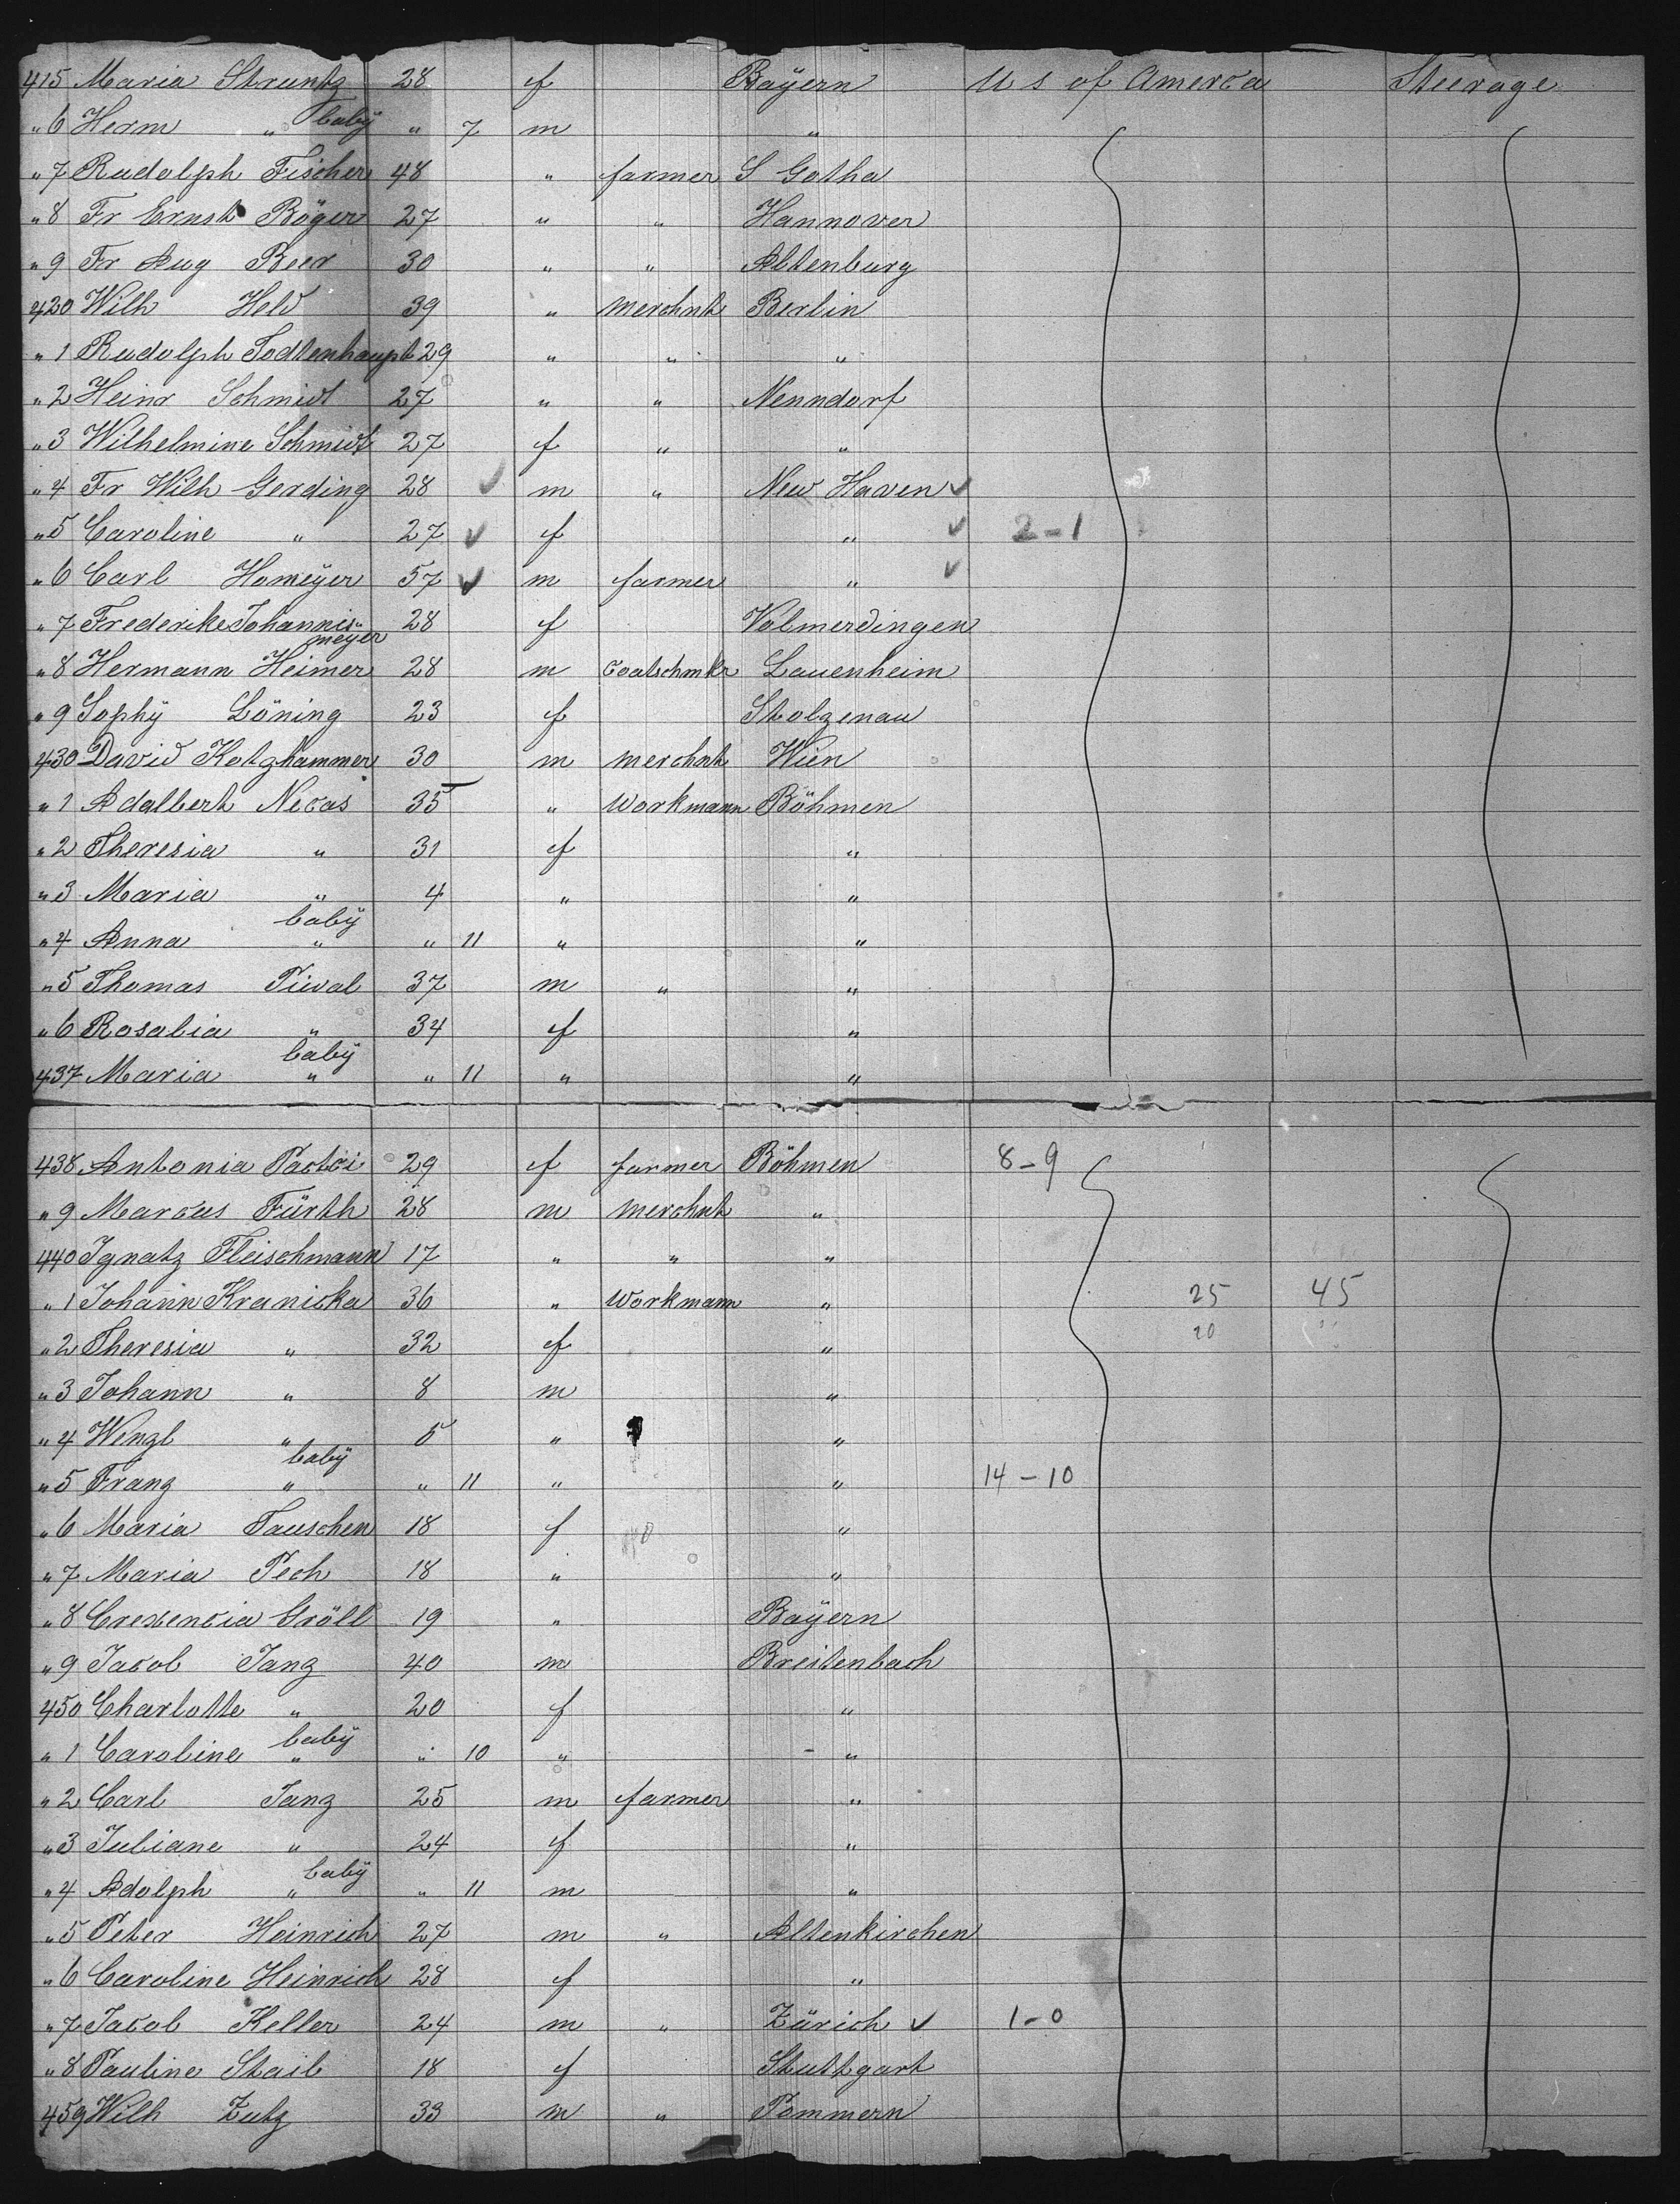 415 Maria Struntz 28 f Bayern U s of America Steerage
" 6 Herm " baby " 7 m "
" 7 Rudolph Fischer 48 " farmer S Gotha
" 8 Fr Ernst Böger 27 " " Hannover
" 9 Fr Aug Beer 30 " " Altenburg
420 Wilh Held 39 " merchnt Berlin
" 1 Rudolph Todtenhaupt 29 " " "
" 2 Heinr Schmidt 27 " " Nenndorf
" 3 Wilhelmine Schmidt 27 f " "
" 4 Fr Wilh Gerding 28 ✓ m " New Haven ✓
" 5 Caroline " 27 ✓ f " ✓ 2-1
" 6 Carl Homeÿer 57 ✓ m farmer " ✓
" 7 Frederike Johannis- 28 f Volmerdingen
meyer
" 8 Hermann Heimer 28 m Coatschmkr Lauenheim
" 9 Sophÿ Löning 23 f Stolzenau
430 David Kotzhammer 30 m merchnt Wien
" 1 Adalbert Necas 35 " Workmann Böhmen
" 2 Theresia " 31 f "
" 3 Maria " 4 " "
" 4 Anna " baby " 11 " "
" 5 Thomas Pieval 37 m " "
" 6 Rosalia " 34 f "
437 Maria " baby " 11 " "
438 Antonia 29 f farmer Böhmen 8-9
" 9 Marcus Fürth 28 m merchnt "
440 Ignatz Fleischmann 17 " " "
" 1 Johann Kranicka 36 " Workmann " 25 45
" 2 Theresia " 32 f " 20
" 3 Johann " 8 m "
" 4 Wenzl " 5 " "
" 5 Franz " baby " 11 " " 14-10
" 6 Maria Tauschen 18 f "
" 7 Maria Pech 18 " "
" 8 Crescencia Ströll 19 " Bayern
" 9 Jacob Jang 40 m Breitenbach
450 Charlotte " 20 f "
" 1 Caroline " baby " 10 " "
" 2 Carl Jang 25 m farmer "
" 3 Juliane " 24 f "
" 4 Adolph " baby " 11 m "
" 5 Peter Heinrich 27 m " Altenkirchen
" 6 Caroline Heinrich 28 f "
" 7 Jacob Keller 24 m " Zürich ✓ 1-0
" 8 Pauline Staib 18 f Stuttgart
459 Wilh Zutz 33 m " Pommern